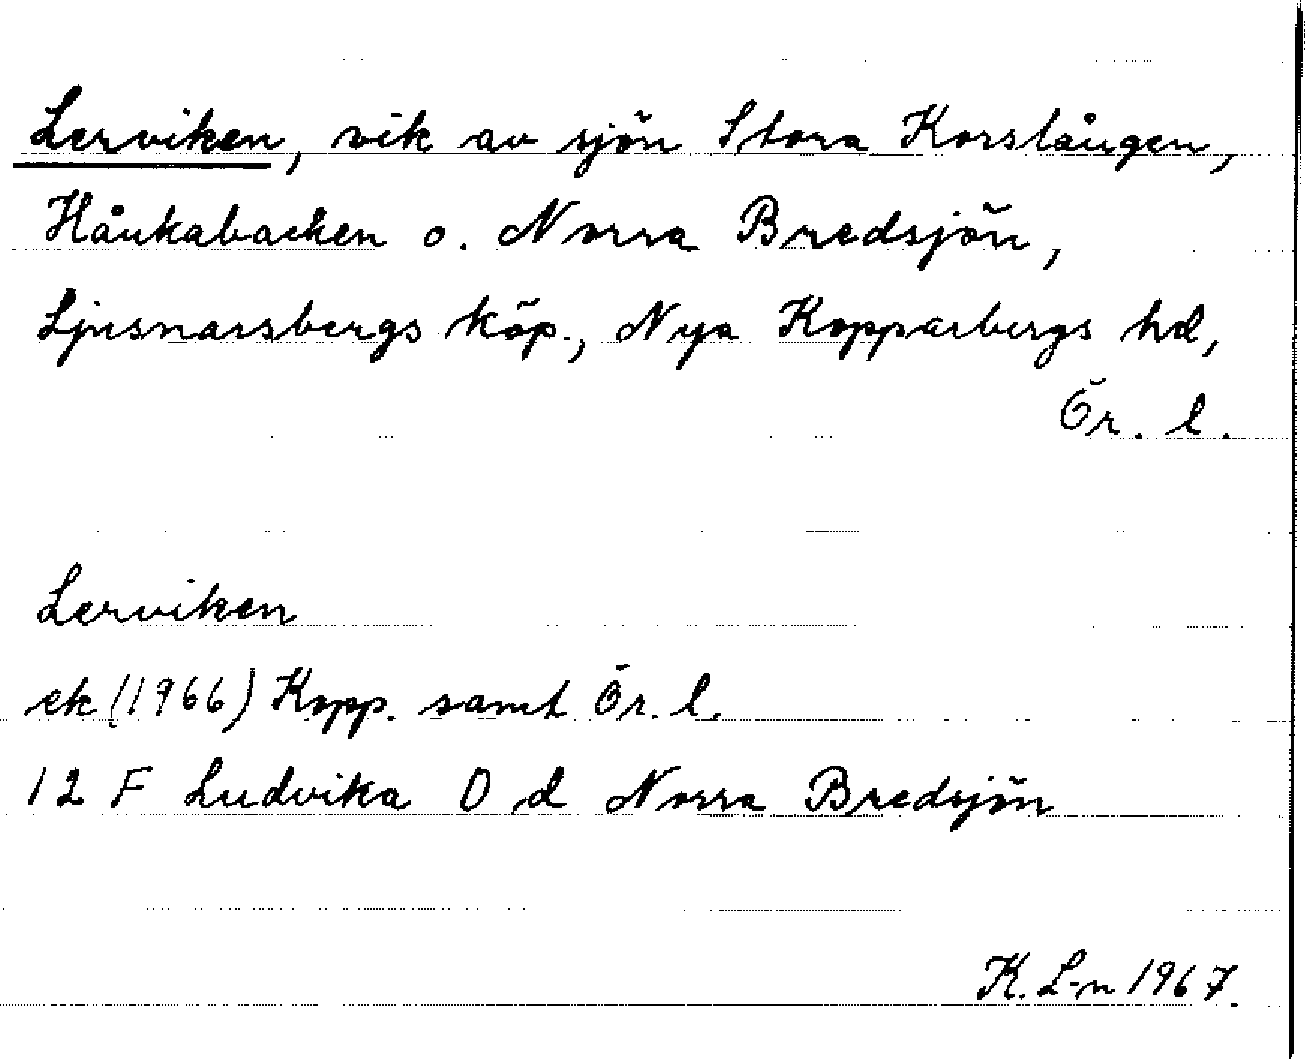 Lerviken, vik av sjön Stora Korslången,
Hånkabacken o. Norra Bredsjön,
Ljusnarsbergs köp., Nya Kopparbergs hd,
Ör. l.
Lerviken
ek (1966) Kopp. samt Ör. l.
12 F Ludvika O d Norra Bredsjön
K. L-n 1967.